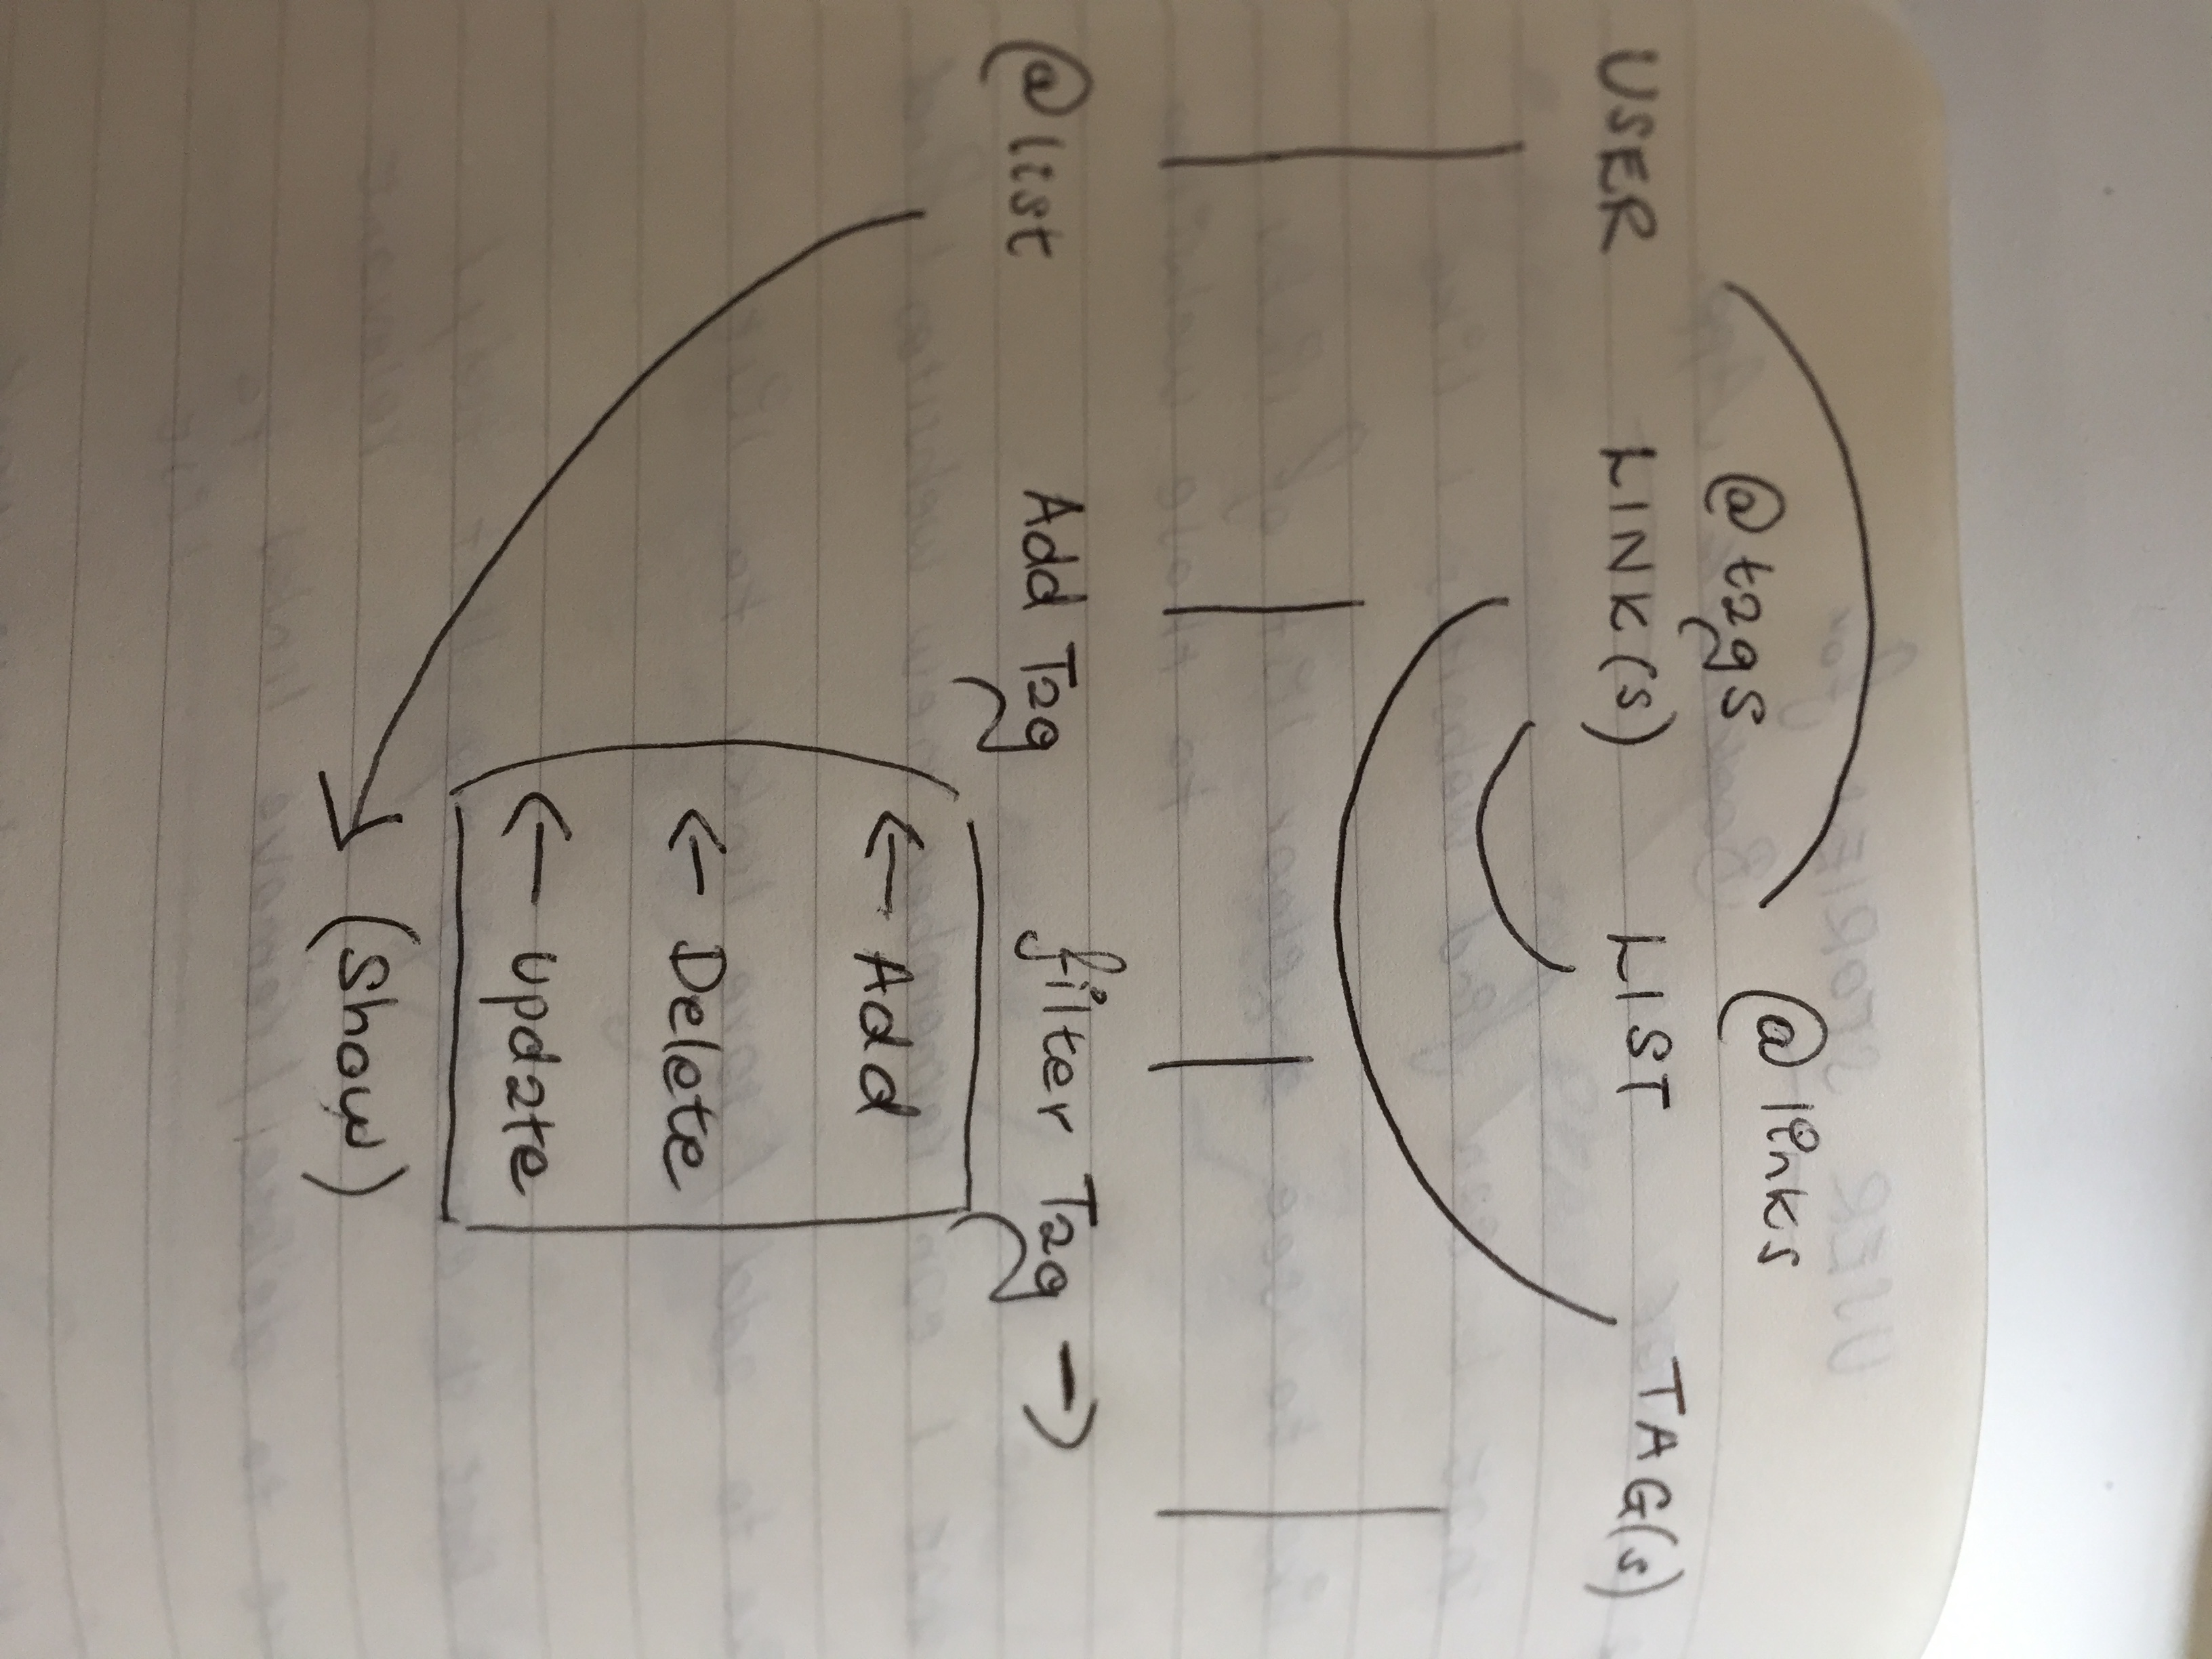 @tags @links
USER LINK(s) LIST TAG(s)
@list Add Tag filter Tag →
← Add
← Delete
← Update
(Show)